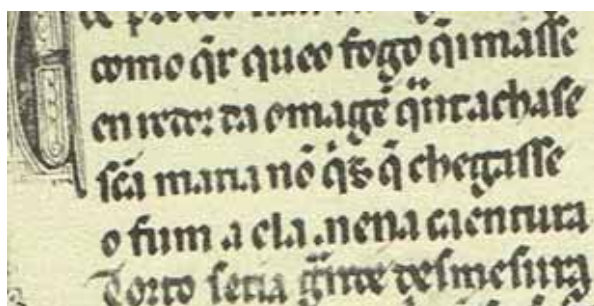 como q̄r queo fogo q̄imasse
en redor da omagẽ q̃ntachase
sc̃a maria nõ q̇s q̄ chegasse
o fum a ela .nena caentura
Torto seria g̃nde desmesura